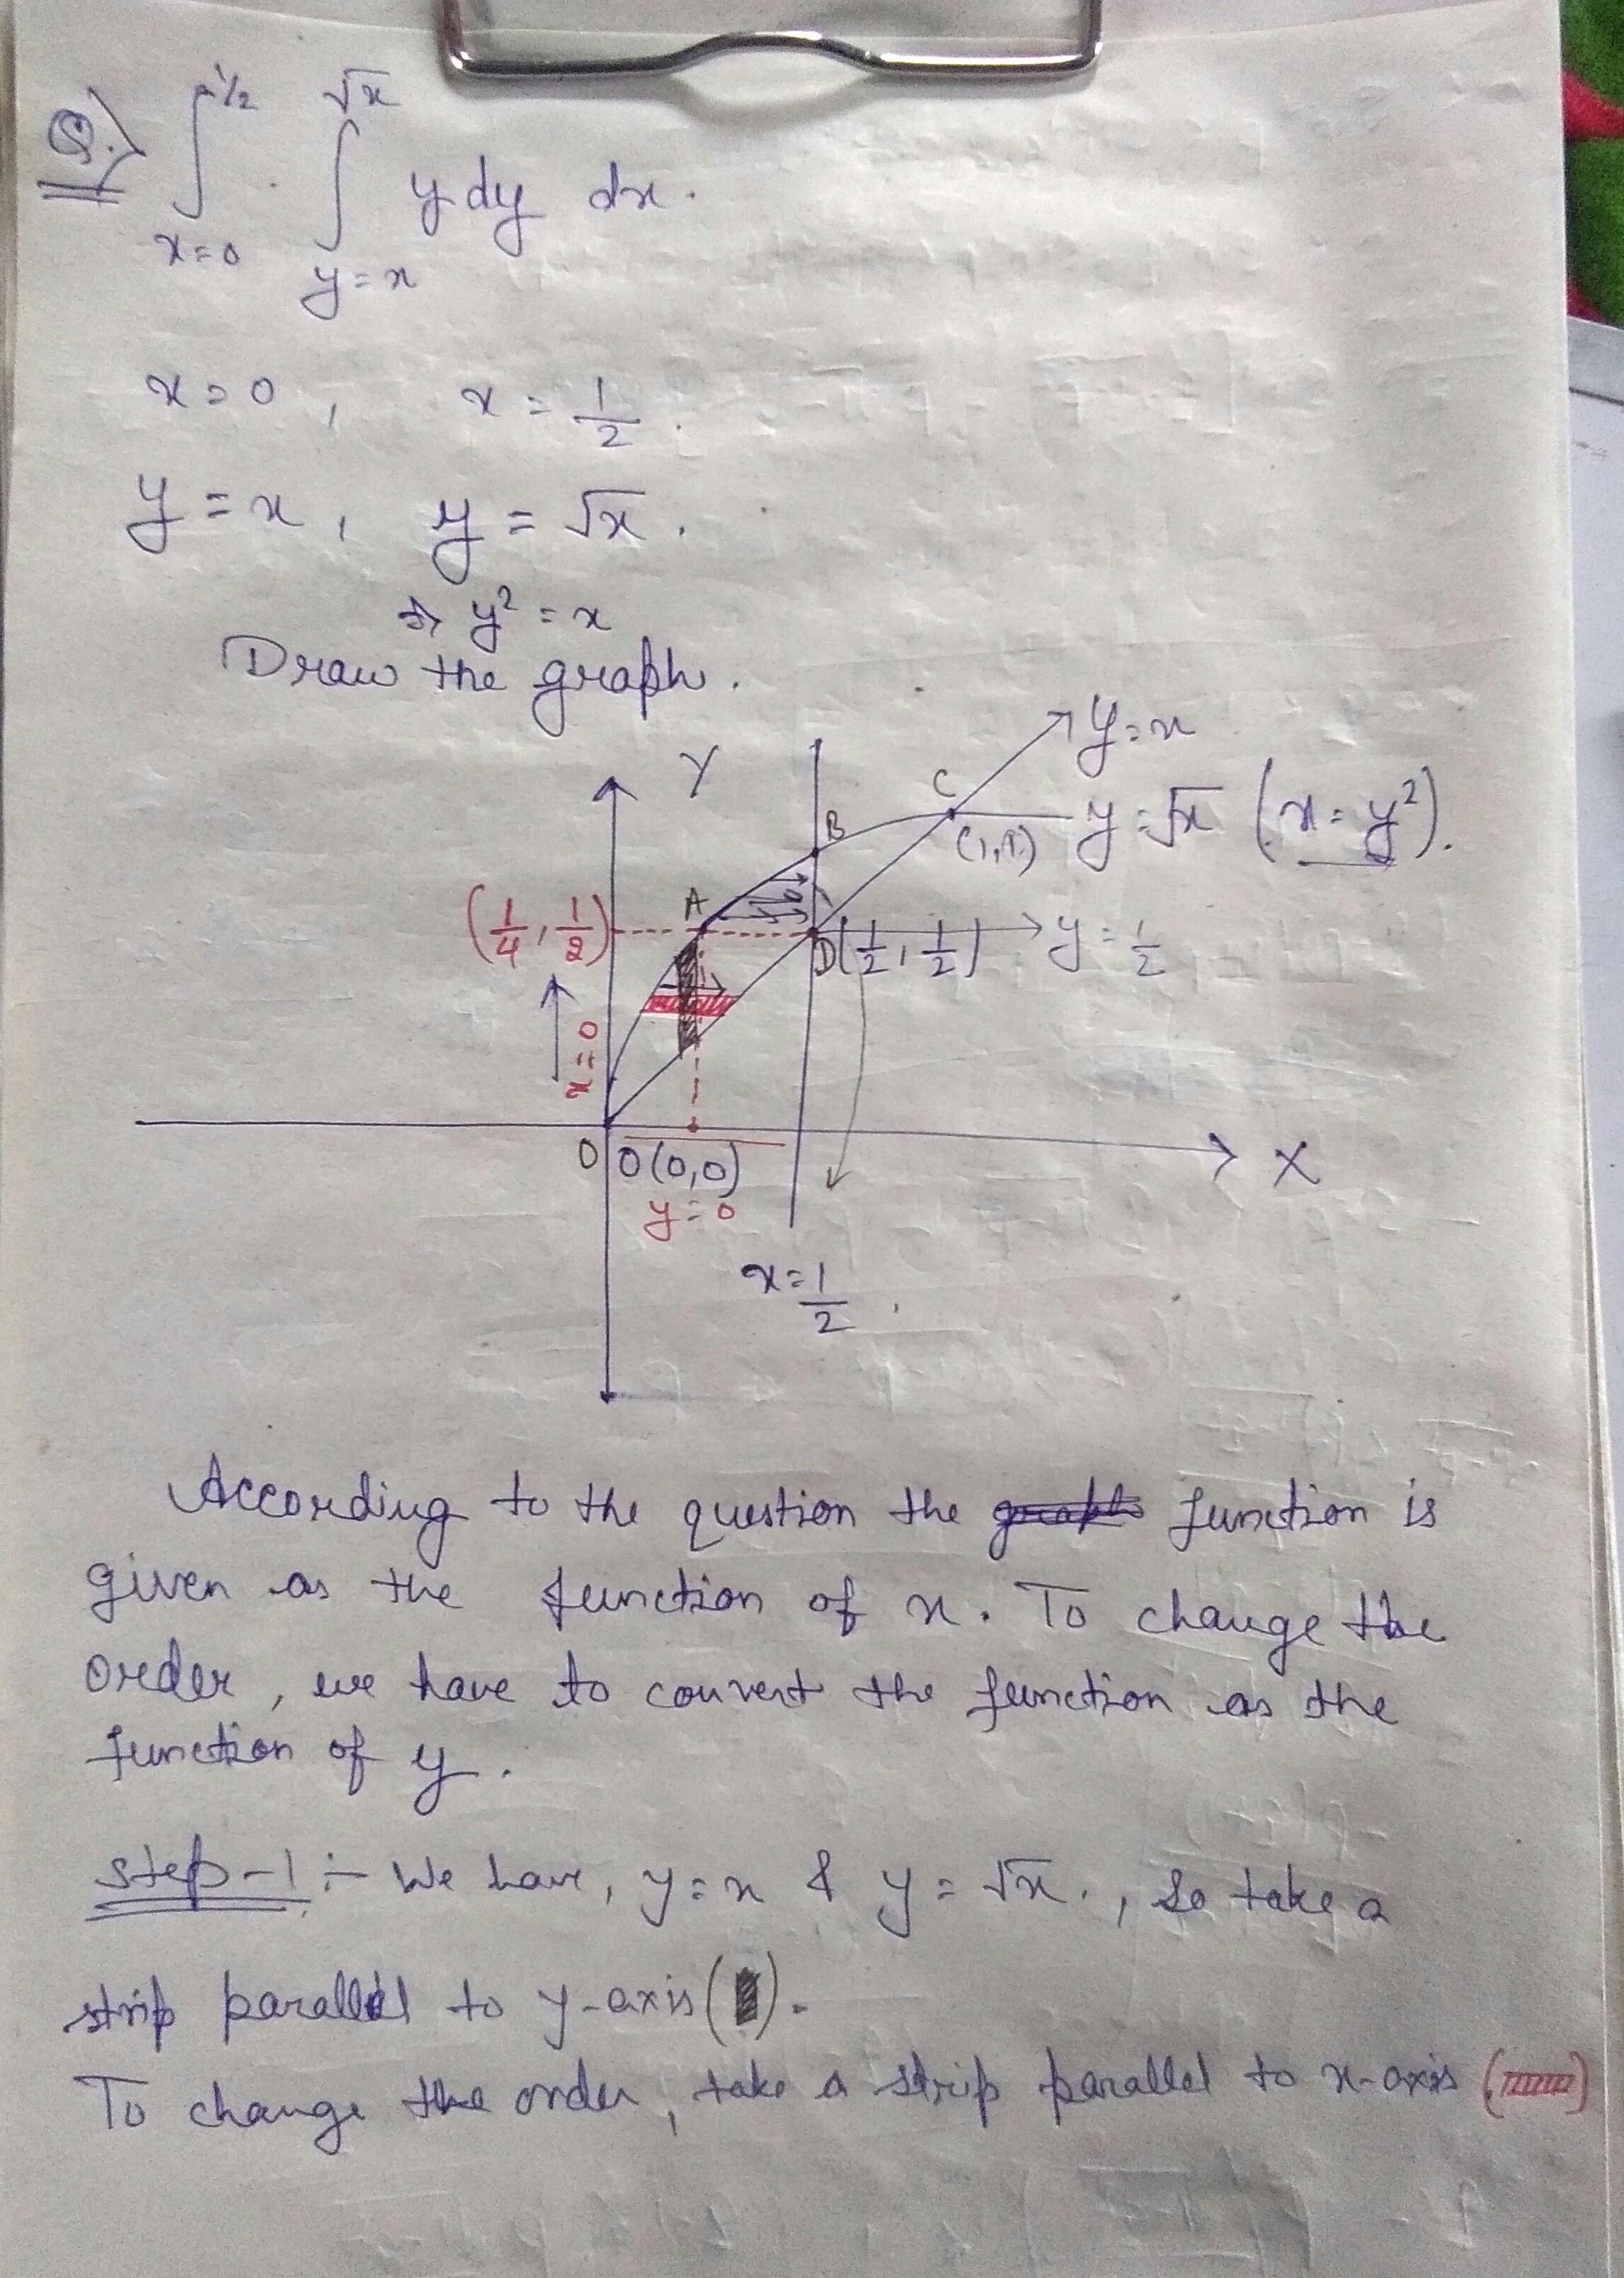 Q.) ∫ 1/2 x=0 ∫ √x y=x y dy dx.
x=0, x = 1/2.
y = x, y = √x.
⇒ y² = x
Draw the graph.
y=x
Y
C
B
(1,1) y=√x (x=y²).
A
(1/4, 1/2)
D(1/2, 1/2) y=1/2
x=0
O O(0,0) X
y=0
x=1/2.
According to the question the function is
given as the function of x. To change the
order, we have to convert the function as the
function of y.
Step-1:- We have, y=x & y=√x., So take a
strip parallel to y-axis( ).
To change the order, take a strip parallel to x-axis ( )